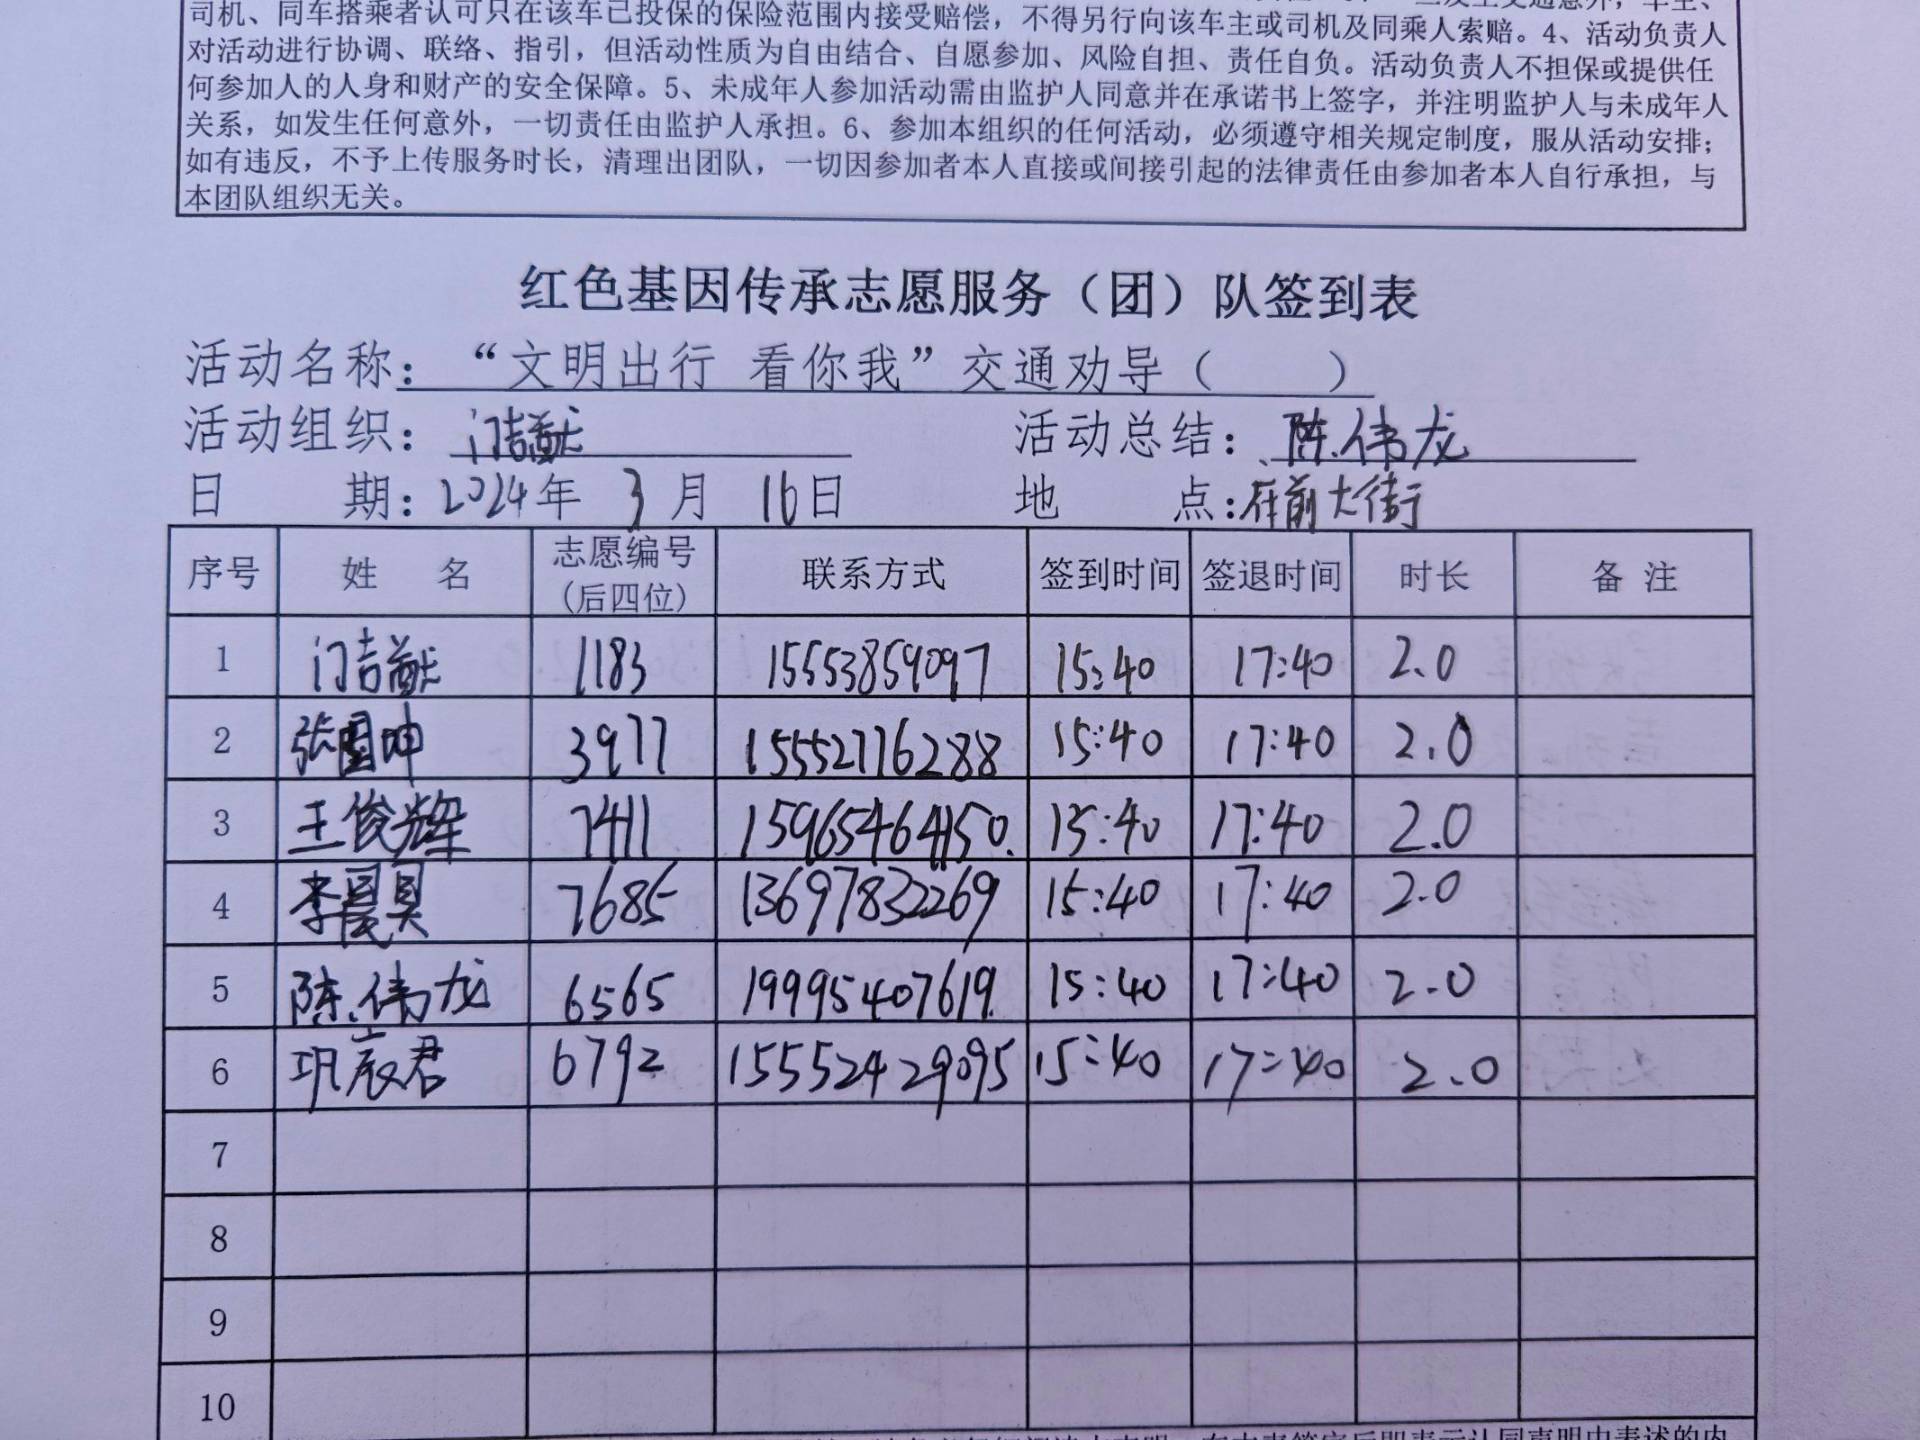 司机、同车搭乘者认可只在该车已投保的保险范围内接受赔偿，不得另行向该车主或司机及同乘人索赔。4、活动负责人
对活动进行协调、联络、指引，但活动性质为自由结合、自愿参加、风险自担、责任自负。活动负责人不担保或提供任
何参加人的人身和财产的安全保障。5、未成年人参加活动需由监护人同意并在承诺书上签字，并注明监护人与未成年人
关系，如发生任何意外，一切责任由监护人承担。6、参加本组织的任何活动，必须遵守相关规定制度，服从活动安排；
如有违反，不予上传服务时长，清理出团队，一切因参加者本人直接或间接引起的法律责任由参加者本人自行承担，与
本团队组织无关。
红色基因传承志愿服务（团）队签到表
活动名称：“文明出行 看你我”交通劝导（ ）
活动组织：门喆猷 活动总结：陈伟龙
日 期：2024年 3月 16日 地 点：府前大街
序号 姓 名 志愿编号(后四位) 联系方式 签到时间 签退时间 时长 备 注
1 门喆猷 1183 15553859097 15:40 17:40 2.0
2 张坤 3977 15552776288 15:40 17:40 2.0
3 王俊辉 7411 15965464150. 15:40 17:40 2.0
4 李晨昊 7685 13697832269 15:40 17:40 2.0
5 陈伟龙 6565 19995407619. 15:40 17:40 2.0
6 巩宸君 6792 15552429095 15:40 17:40 2.0
7
8
9
10